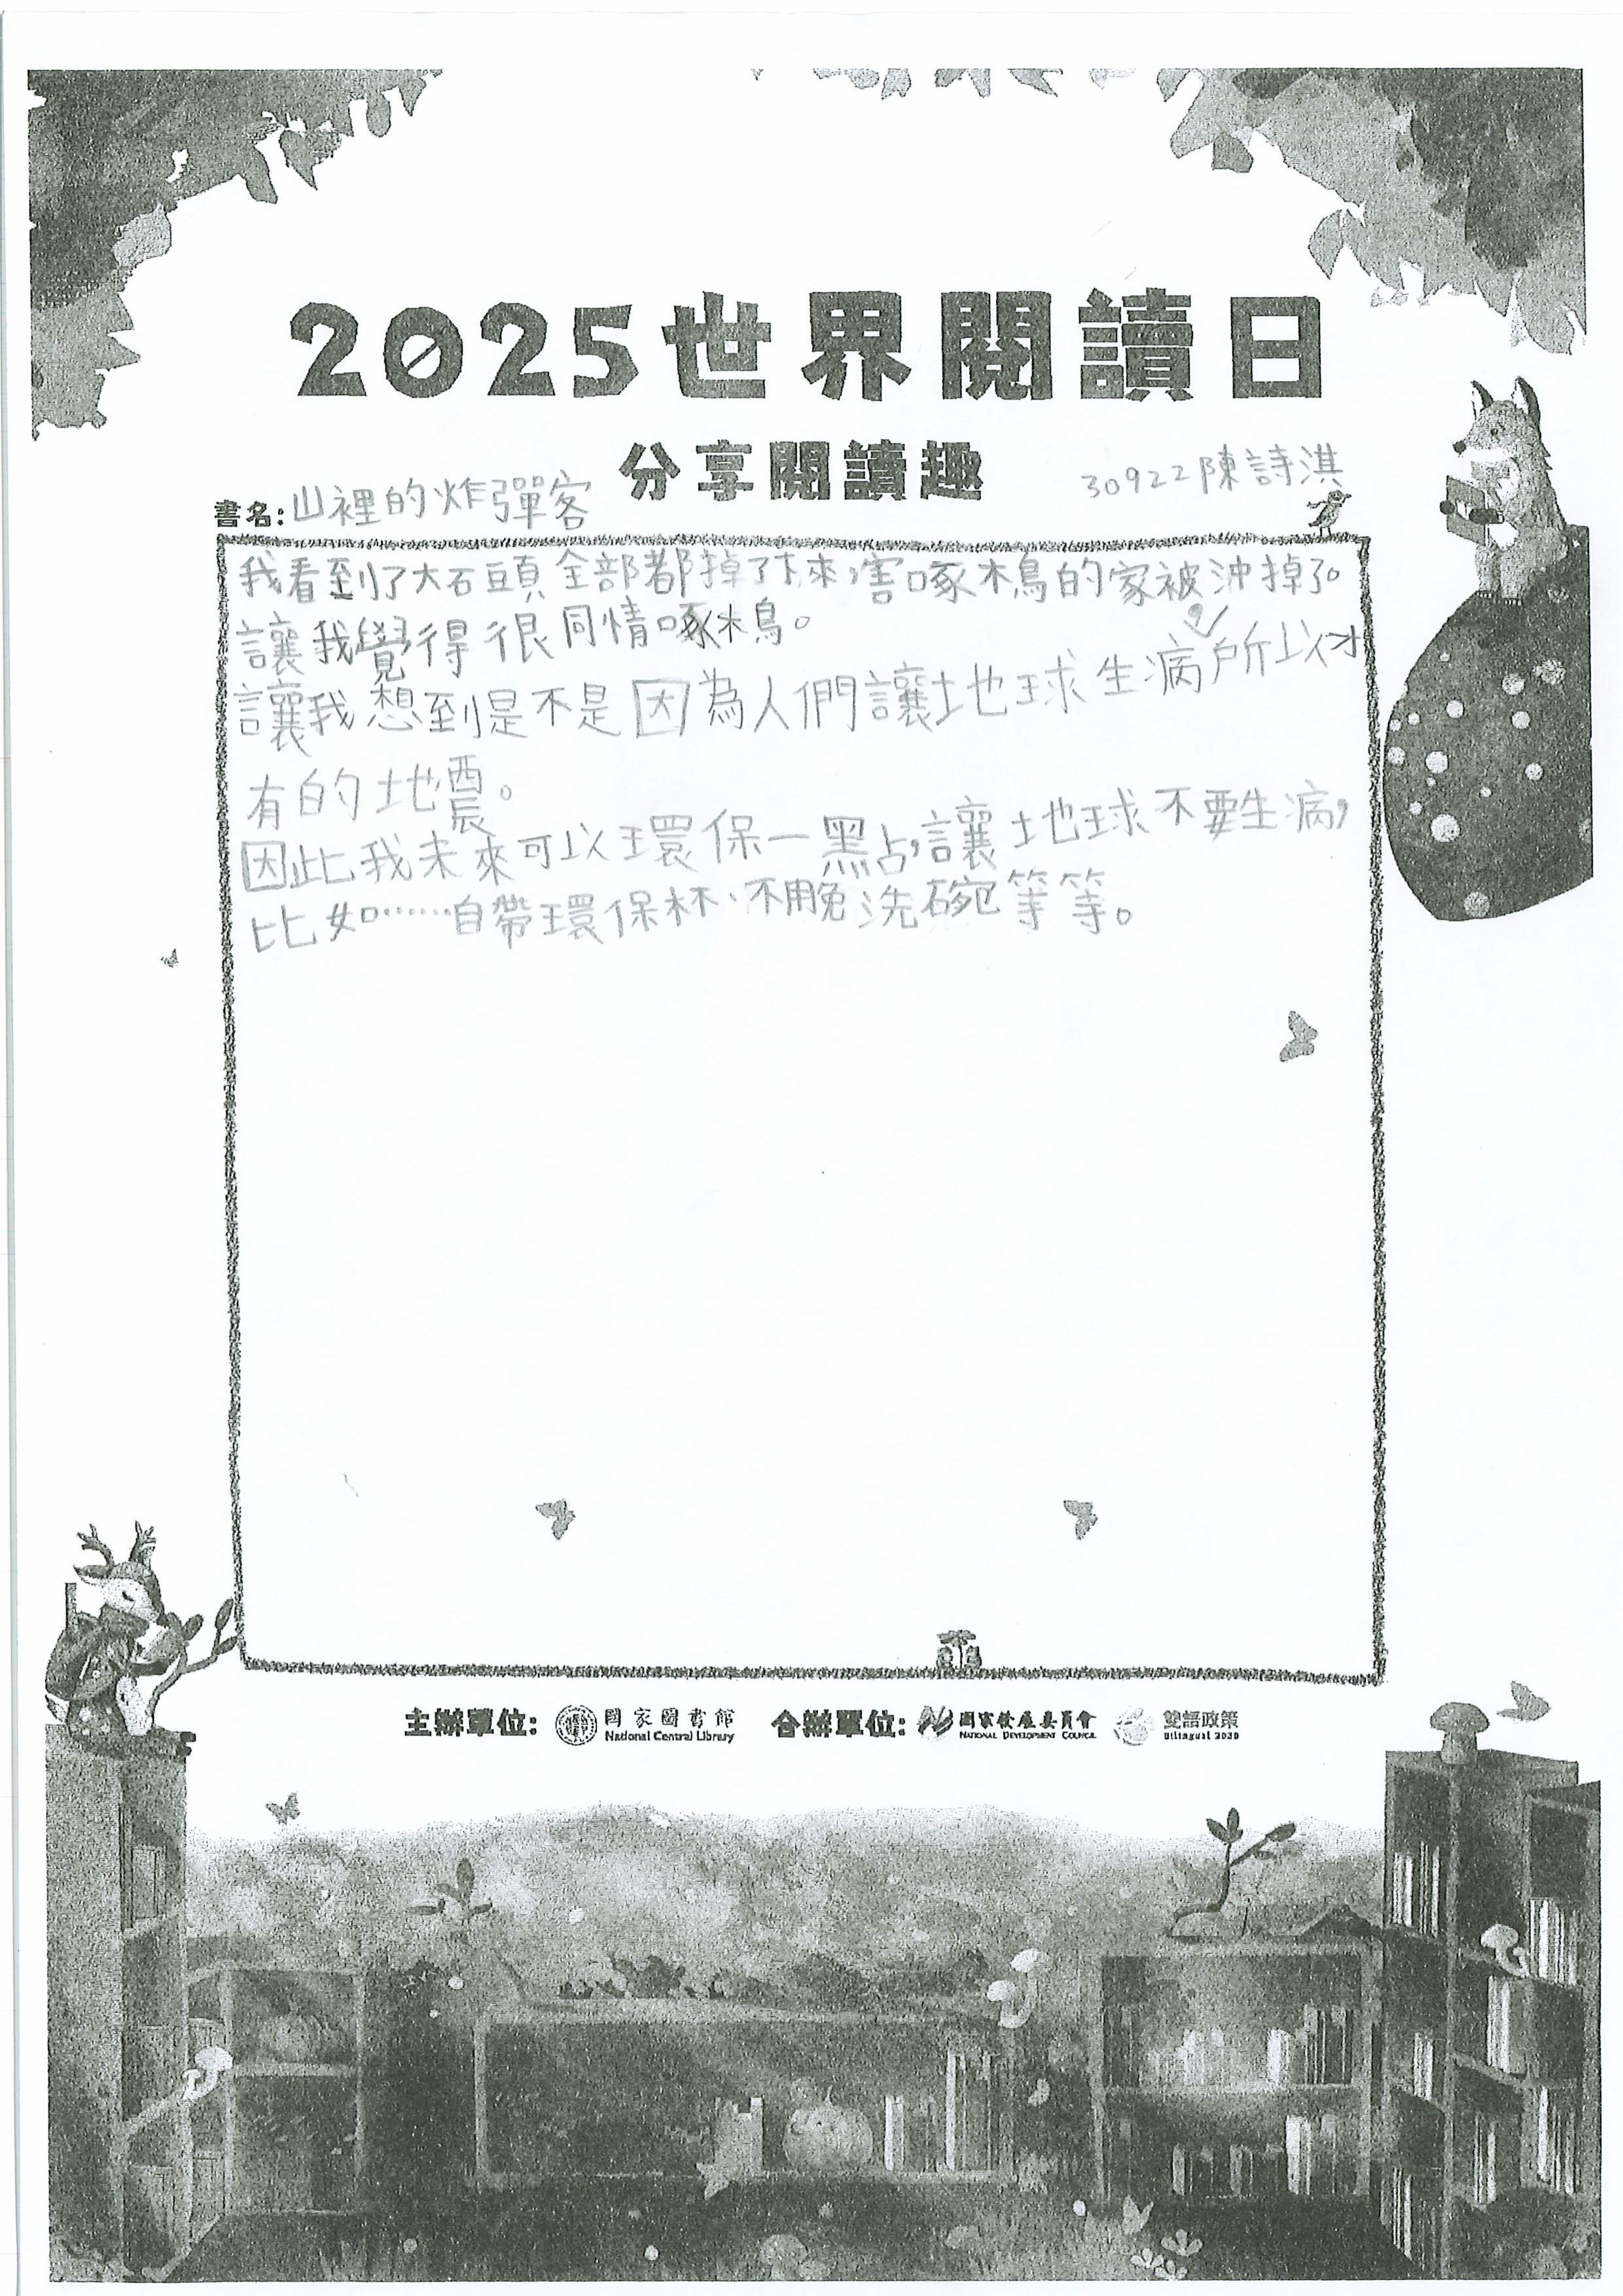 2025世界閱讀日
分享閱讀趣
30922陳詩淇
書名:山裡的炸彈客
我看到了大石頭全部都掉了下來,害啄木鳥的家被沖掉了。
讓我覺得很同情啄木鳥。
讓我想到是不是因為人們讓地球生病,所以才
有的地震。
因此我未來可以環保一點,讓地球不要生病,
比如……自帶環保杯、不用免洗碗等等。
主辦單位: 國家圖書館 National Central Library 合辦單位: 國家發展委員會 NATIONAL DEVELOPMENT COUNCIL 雙語政策 Bilingual 2030